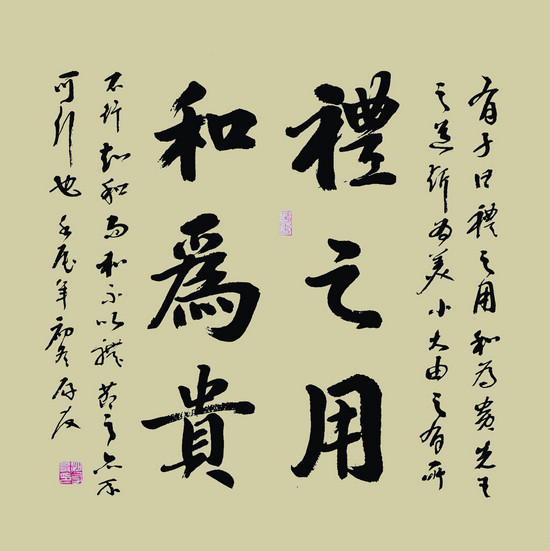 有子曰禮之用和为貴先王
之道斯为美小大由之有所
禮之用
和爲貴
不行知和而和不以禮節之亦不
可行也 年初冬